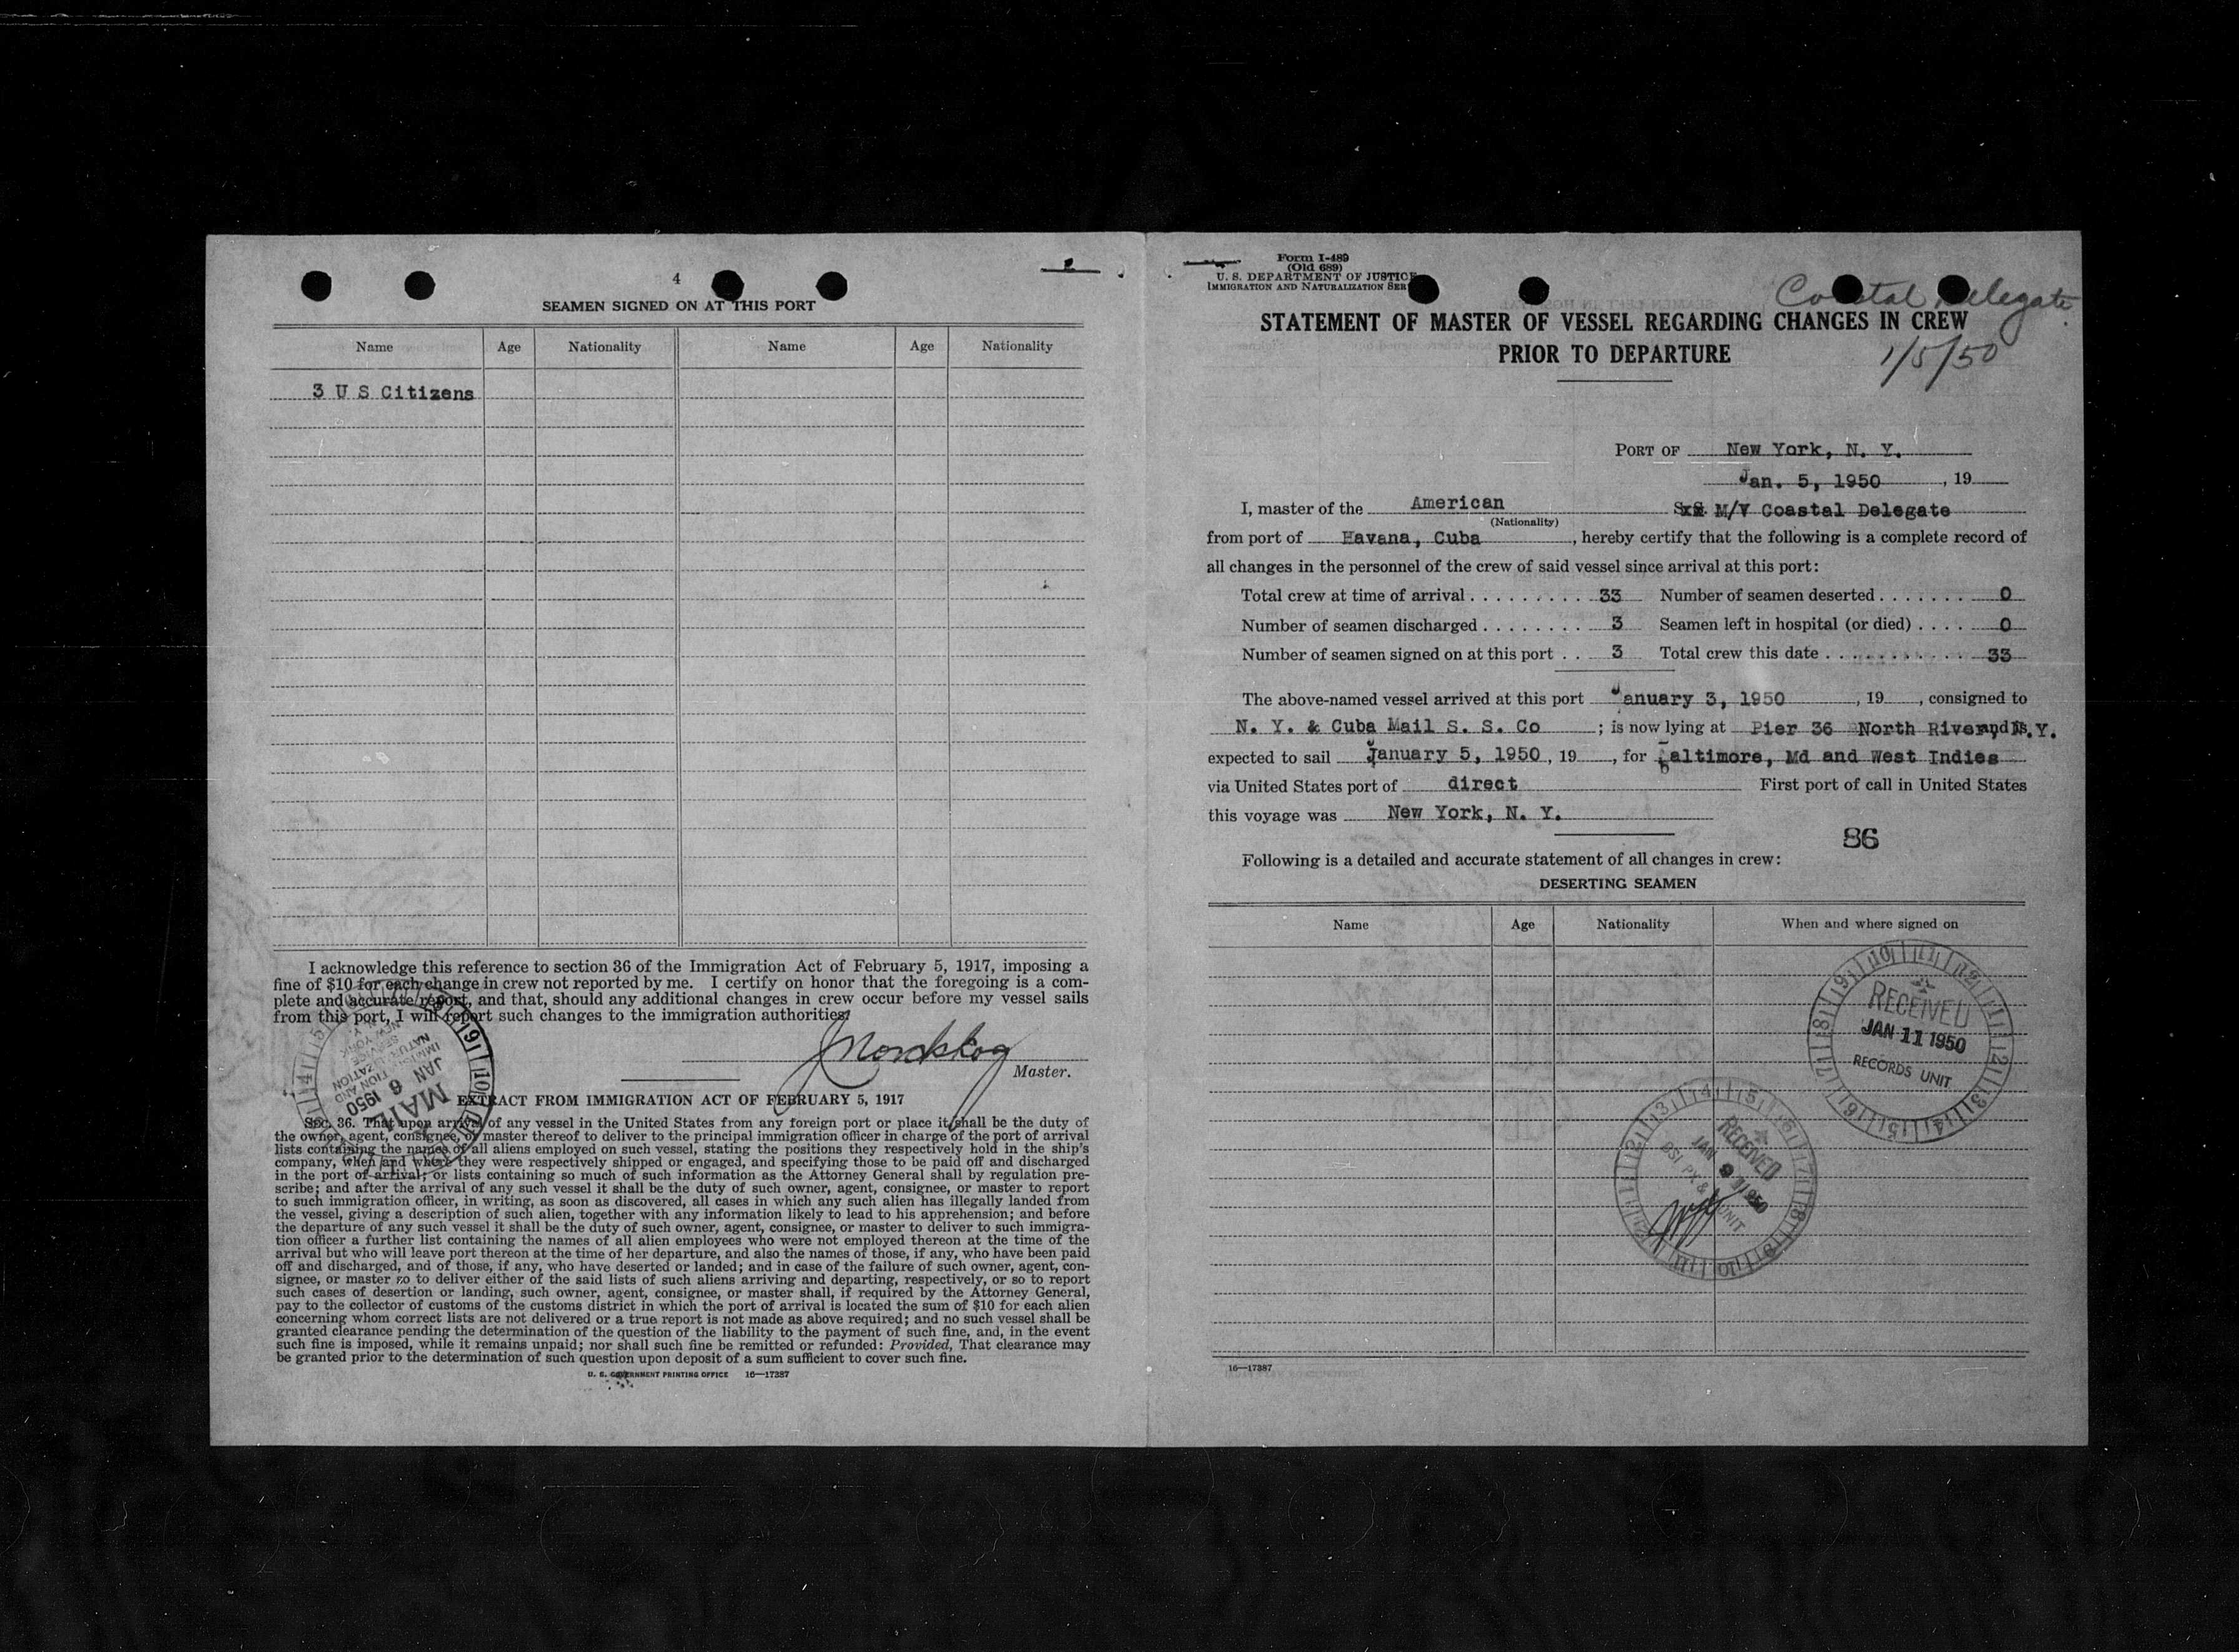 4
SEAMEN SIGNED ON AT THIS PORT
Name Age Nationality Name Age Nationality
3 U S Citizens
I acknowledge this reference to section 36 of the Immigration Act of February 5, 1917, imposing a
fine of $10 for each change in crew not reported by me. I certify on honor that the foregoing is a com-
plete and accurate report, and that, should any additional changes in crew occur before my vessel sails
from this port, I will report such changes to the immigration authorities.
J Nordskog
Master.
MAIL
JAN 6 1950
EXTRACT FROM IMMIGRATION ACT OF FEBRUARY 5, 1917
Sec. 36. That upon arrival of any vessel in the United States from any foreign port or place it shall be the duty of
the owner, agent, consignee, or master thereof to deliver to the principal immigration officer in charge of the port of arrival
lists containing the names of all aliens employed on such vessel, stating the positions they respectively hold in the ship's
company, when and where they were respectively shipped or engaged, and specifying those to be paid off and discharged
in the port of arrival; or lists containing so much of such information as the Attorney General shall by regulation pre-
scribe; and after the arrival of any such vessel it shall be the duty of such owner, agent, consignee, or master to report
to such immigration officer, in writing, as soon as discovered, all cases in which any such alien has illegally landed from
the vessel, giving a description of such alien, together with any information likely to lead to his apprehension; and before
the departure of any such vessel it shall be the duty of such owner, agent, consignee, or master to deliver to such immigra-
tion officer a further list containing the names of all alien employees who were not employed thereon at the time of the
arrival but who will leave port thereon at the time of her departure, and also the names of those, if any, who have been paid
off and discharged, and of those, if any, who have deserted or landed; and in case of the failure of such owner, agent, con-
signee, or master so to deliver either of the said lists of such aliens arriving and departing, respectively, or so to report
such cases of desertion or landing, such owner, agent, consignee, or master shall, if required by the Attorney General,
pay to the collector of customs of the customs district in which the port of arrival is located the sum of $10 for each alien
concerning whom correct lists are not delivered or a true report is not made as above required; and no such vessel shall be
granted clearance pending the determination of the question of the liability to the payment of such fine, and, in the event
such fine is imposed, while it remains unpaid; nor shall such fine be remitted or refunded: Provided, That clearance may
be granted prior to the determination of such question upon deposit of a sum sufficient to cover such fine.
U. S. GOVERNMENT PRINTING OFFICE 16—17387
Form I-489
(Old 689)
U. S. DEPARTMENT OF JUSTICE
IMMIGRATION AND NATURALIZATION SER
Coastal Delegate
1/5/50
STATEMENT OF MASTER OF VESSEL REGARDING CHANGES IN CREW
PRIOR TO DEPARTURE
PORT OF New York, N. Y.
Jan. 5, 1950, 19
I, master of the American S.S. M/V Coastal Delegate
(Nationality)
from port of Havana, Cuba, hereby certify that the following is a complete record of
all changes in the personnel of the crew of said vessel since arrival at this port:
Total crew at time of arrival . . . . . . . . . . 33 Number of seamen deserted . . . . . . . 0
Number of seamen discharged . . . . . . . . 3 Seamen left in hospital (or died) . . . . 0
Number of seamen signed on at this port . . 3 Total crew this date . . . . . . . . . . . 33
The above-named vessel arrived at this port January 3, 1950, 19, consigned to
N. Y. & Cuba Mail S. S. Co; is now lying at Pier 36 North River, N.Y. and is
expected to sail January 5, 1950, 19, for Baltimore, Md and West Indies
via United States port of direct First port of call in United States
this voyage was New York, N. Y.
86
Following is a detailed and accurate statement of all changes in crew:
DESERTING SEAMEN
Name Age Nationality When and where signed on
RECEIVED
JAN 11 1950
RECORDS UNIT
RECEIVED
JAN 9 1950
UNIT
16—17387